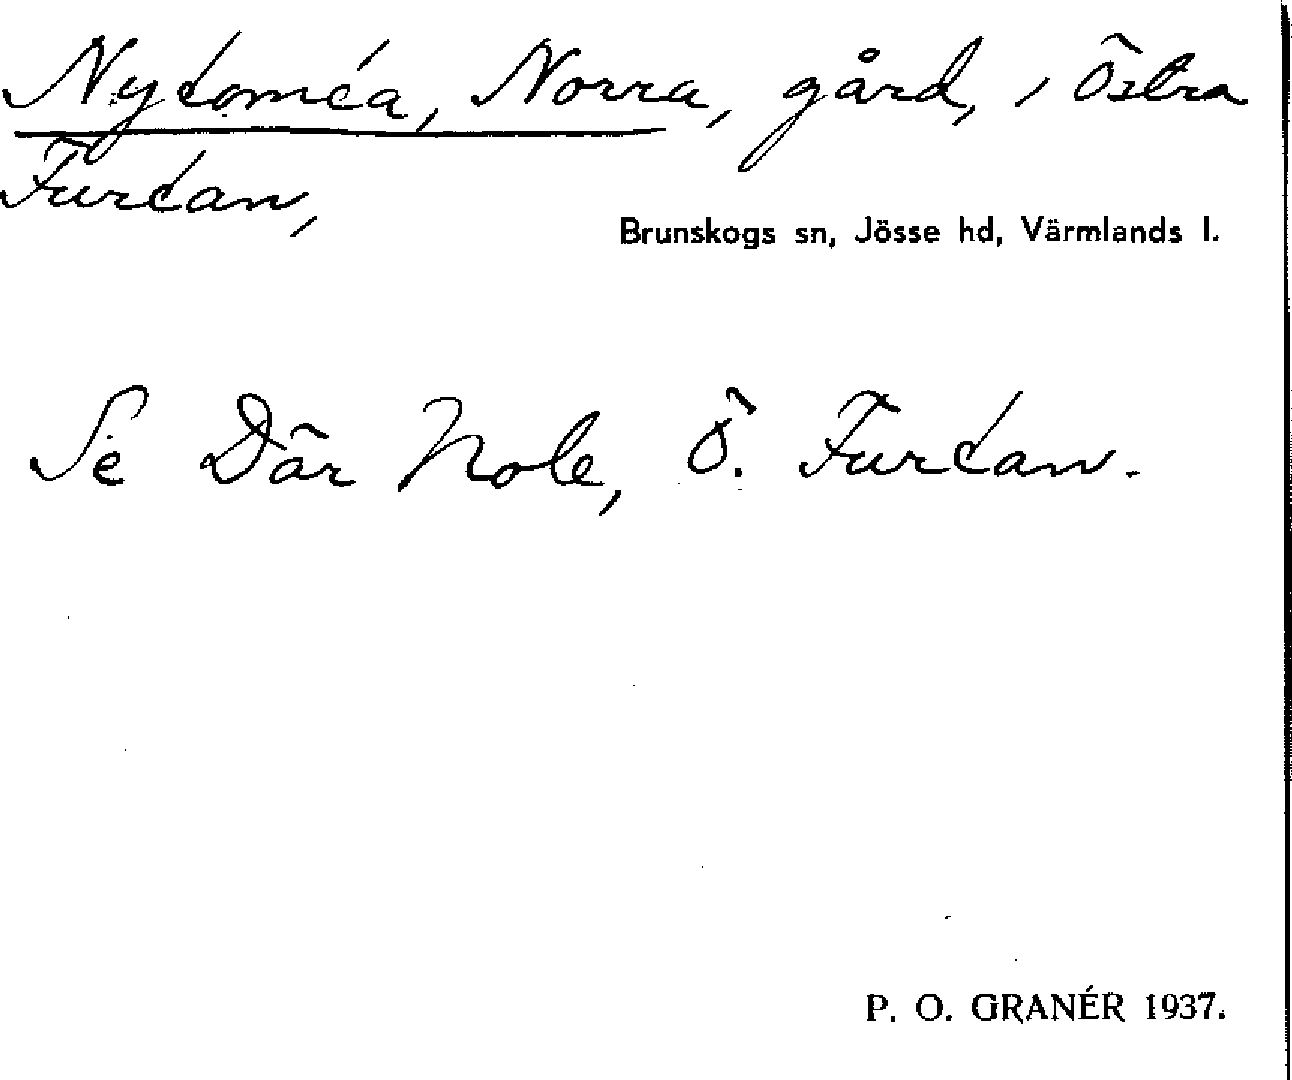 Nytomta, Norra, gård, i Östra
Furtan,
Brunskogs sn, Jösse hd, Värmlands l.
Se Där Nole, Ö. Furtan.
P. O. GRANÉR 1937.